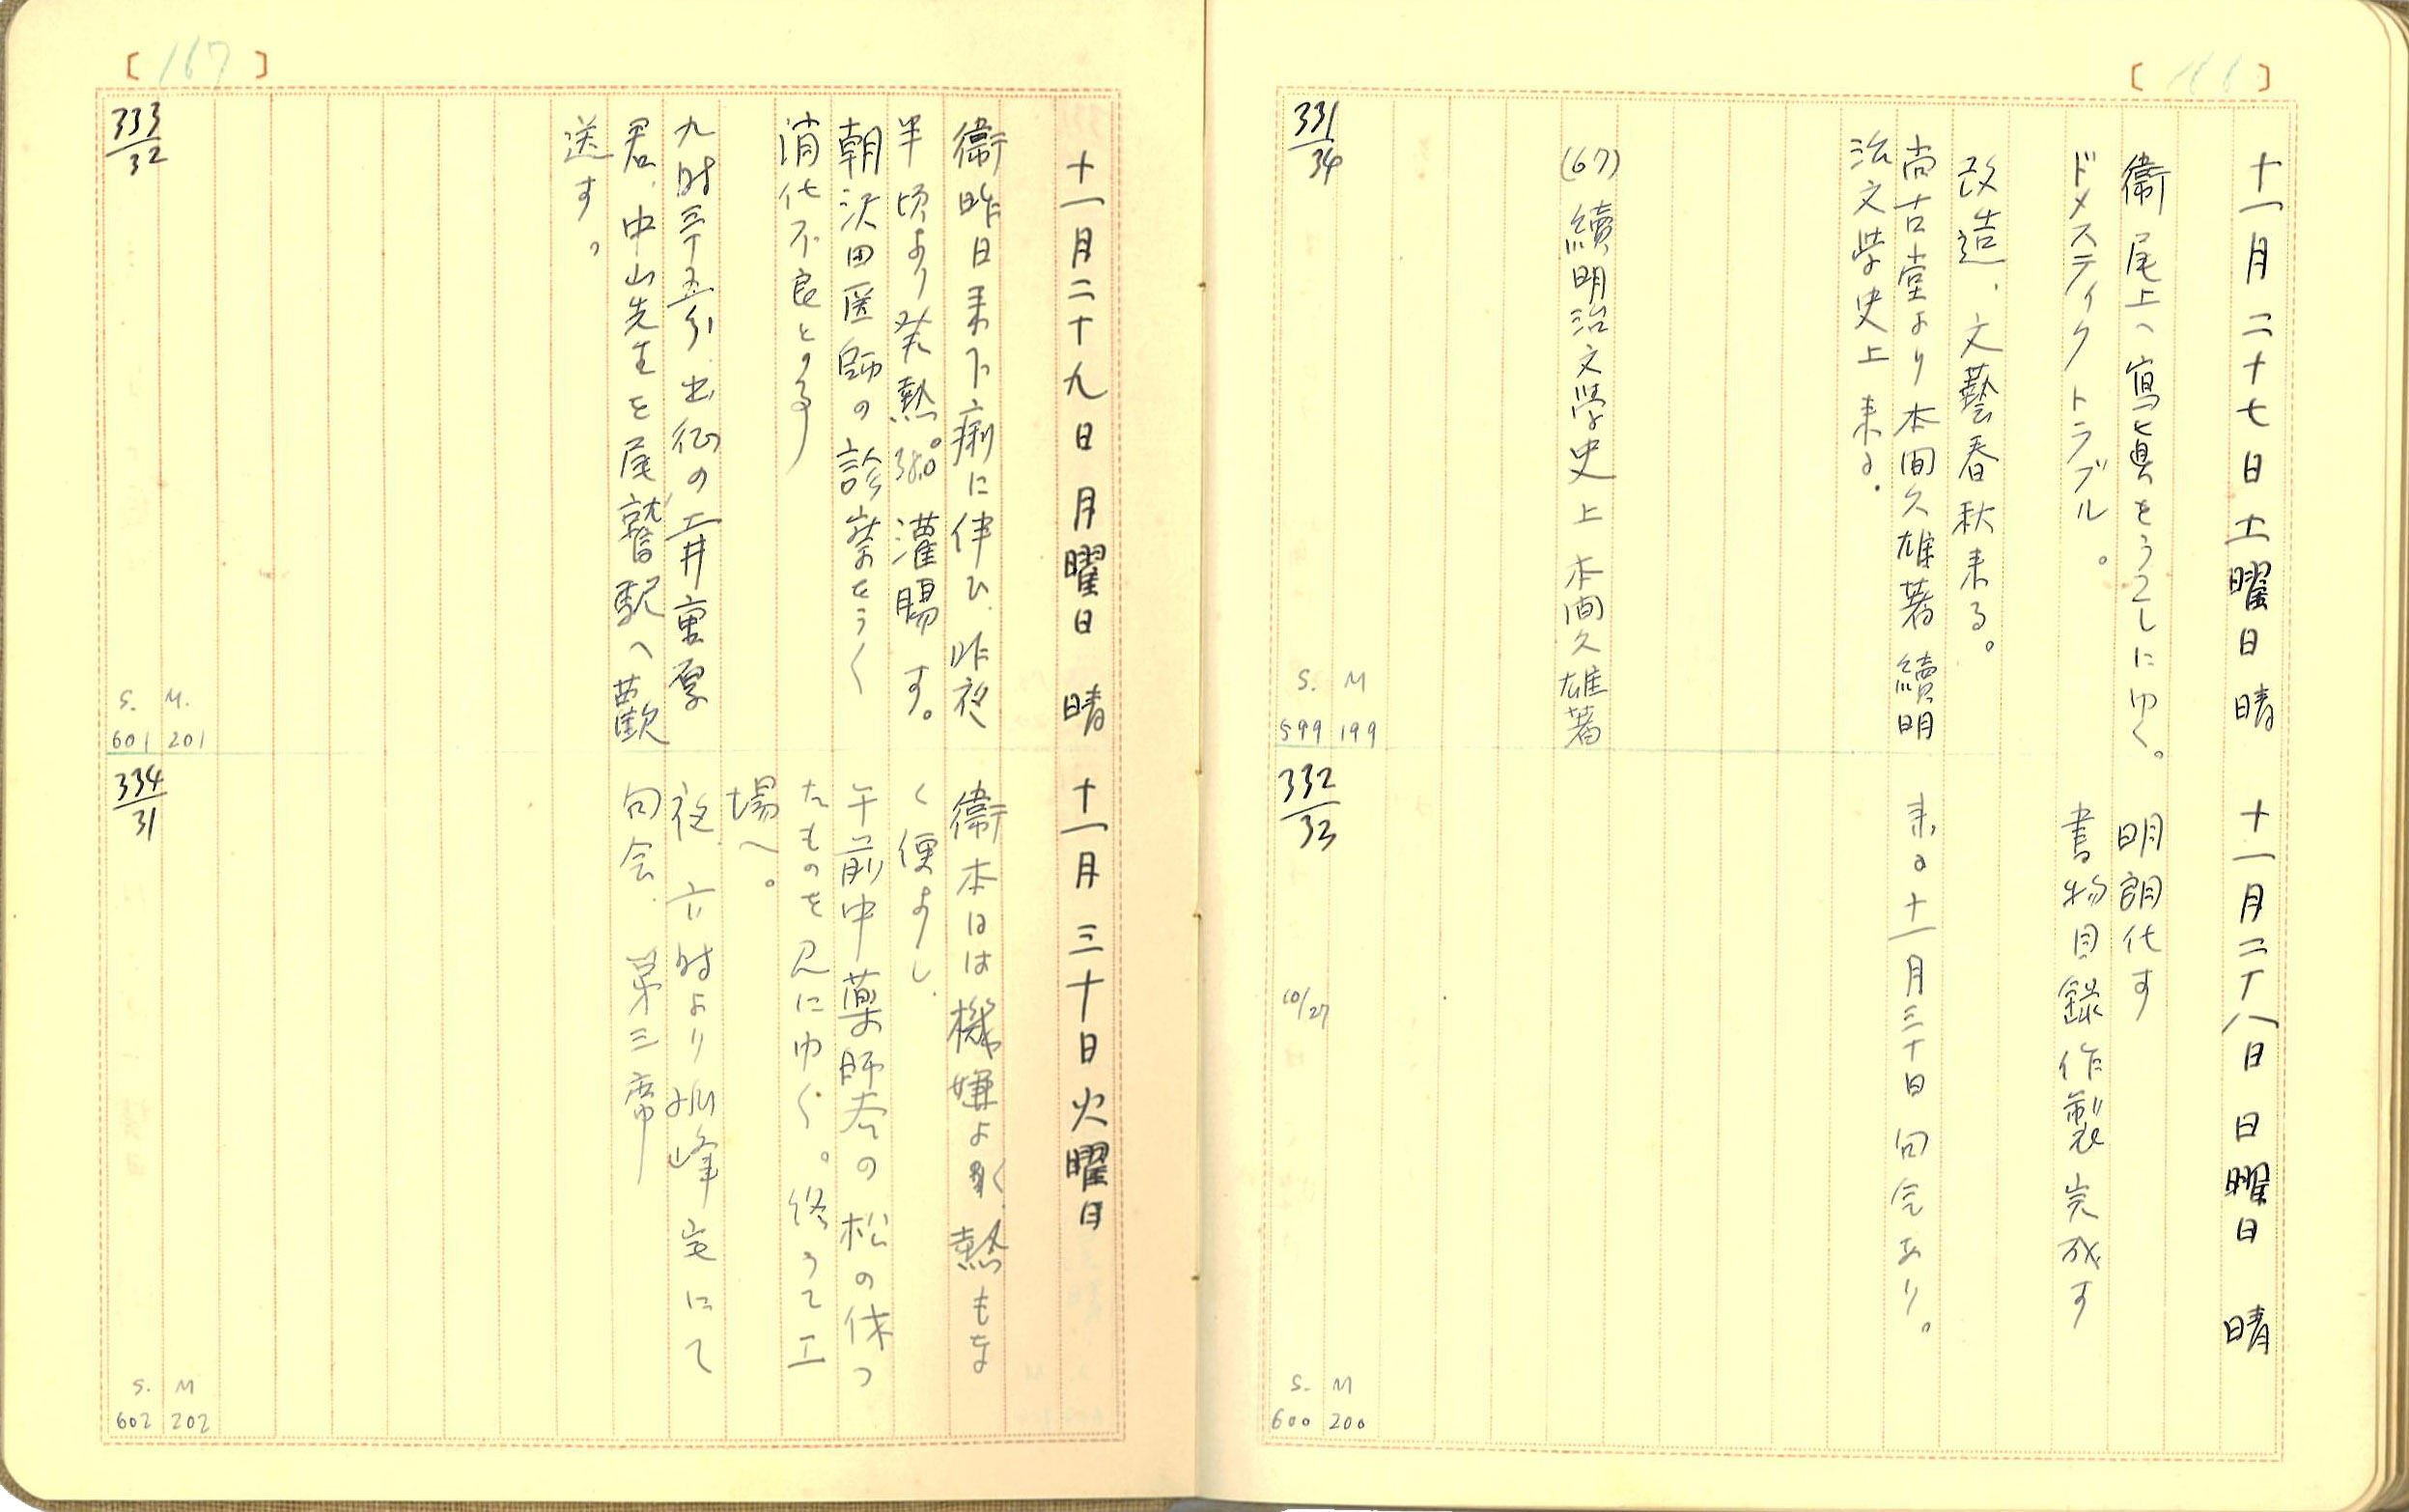 [166]
十一月二十七日土曜日 晴
衞尾上へ寫眞をうつしにゆく。
ドメスティクトラブル。
改造、文藝春秋来る。
尚古堂より本間久雄著 續明
治文学史上来る.
(67) 續明治文學史 上 本間久雄著
331/34
S. M
599 199
十一月二十八日 日曜日 晴
明朗化す
書物目録作製完成す
来る十一月三十日句会あり。
332/33
10/27
S. M
600 200
[167]
十一月二十九日 月曜日 晴
衞昨日来下痢に伴ひ、昨夜
半頃より発熱。38.0 灌腸す。
朝沢田医師の診察をうく
消化不良とのこと
九時三十五分出征の 井重厚
君、中山先生を尾鷲駅へ歡
送す。
333/32
S. M.
601 201
十一月三十日 火曜日
衞本日は機嫌よく熱もな
く便よし.
午前中薬師谷の松の伐つ
たものを見にゆく。終つて工
場へ。
夜、六時より 峰宅にて
句会. 第三席
334/31
S. M
602 202